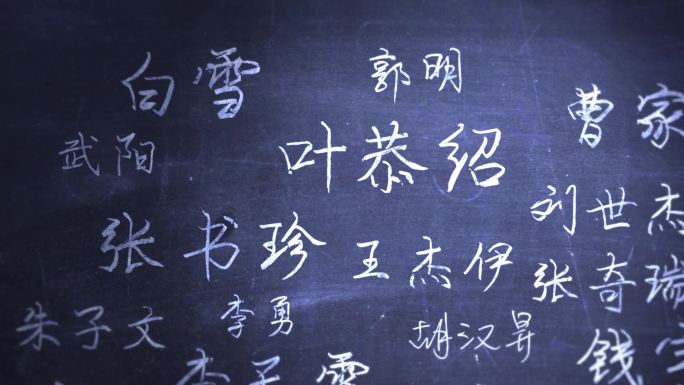 白雪
郭明
曹家
武阳
叶恭绍
刘世杰
张书珍
王杰伊
张奇瑞
朱子文
李勇
胡汉昇
钱